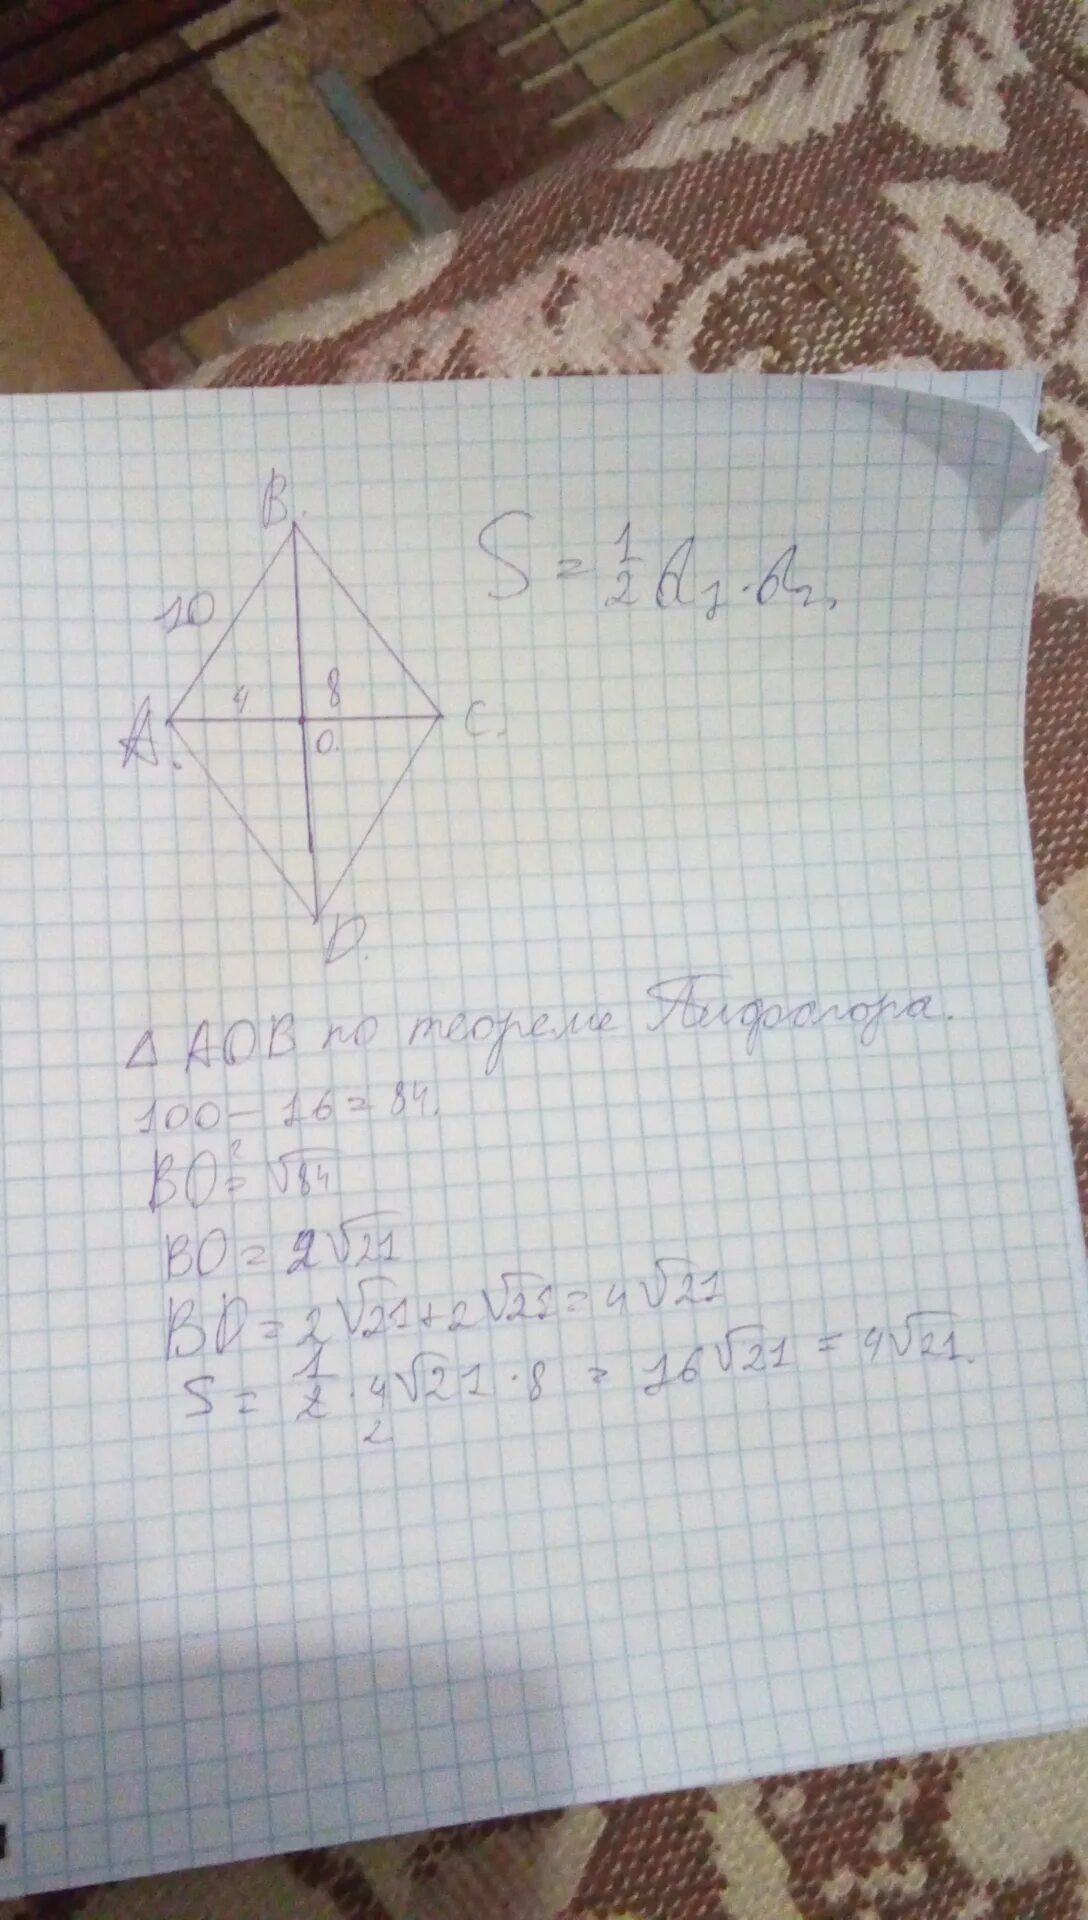 B.
S = 1/2 d₁ · d₂.
10
4 8
A. O. C.
D.
Δ AOB по теореме Пифагора.
100 - 16 = 84.
BO² = √84
BO = 2√21
BD = 2√21 + 2√21 = 4√21
S = 1/2 · 4√21 · 8 = 16√21 = 4√21.
2